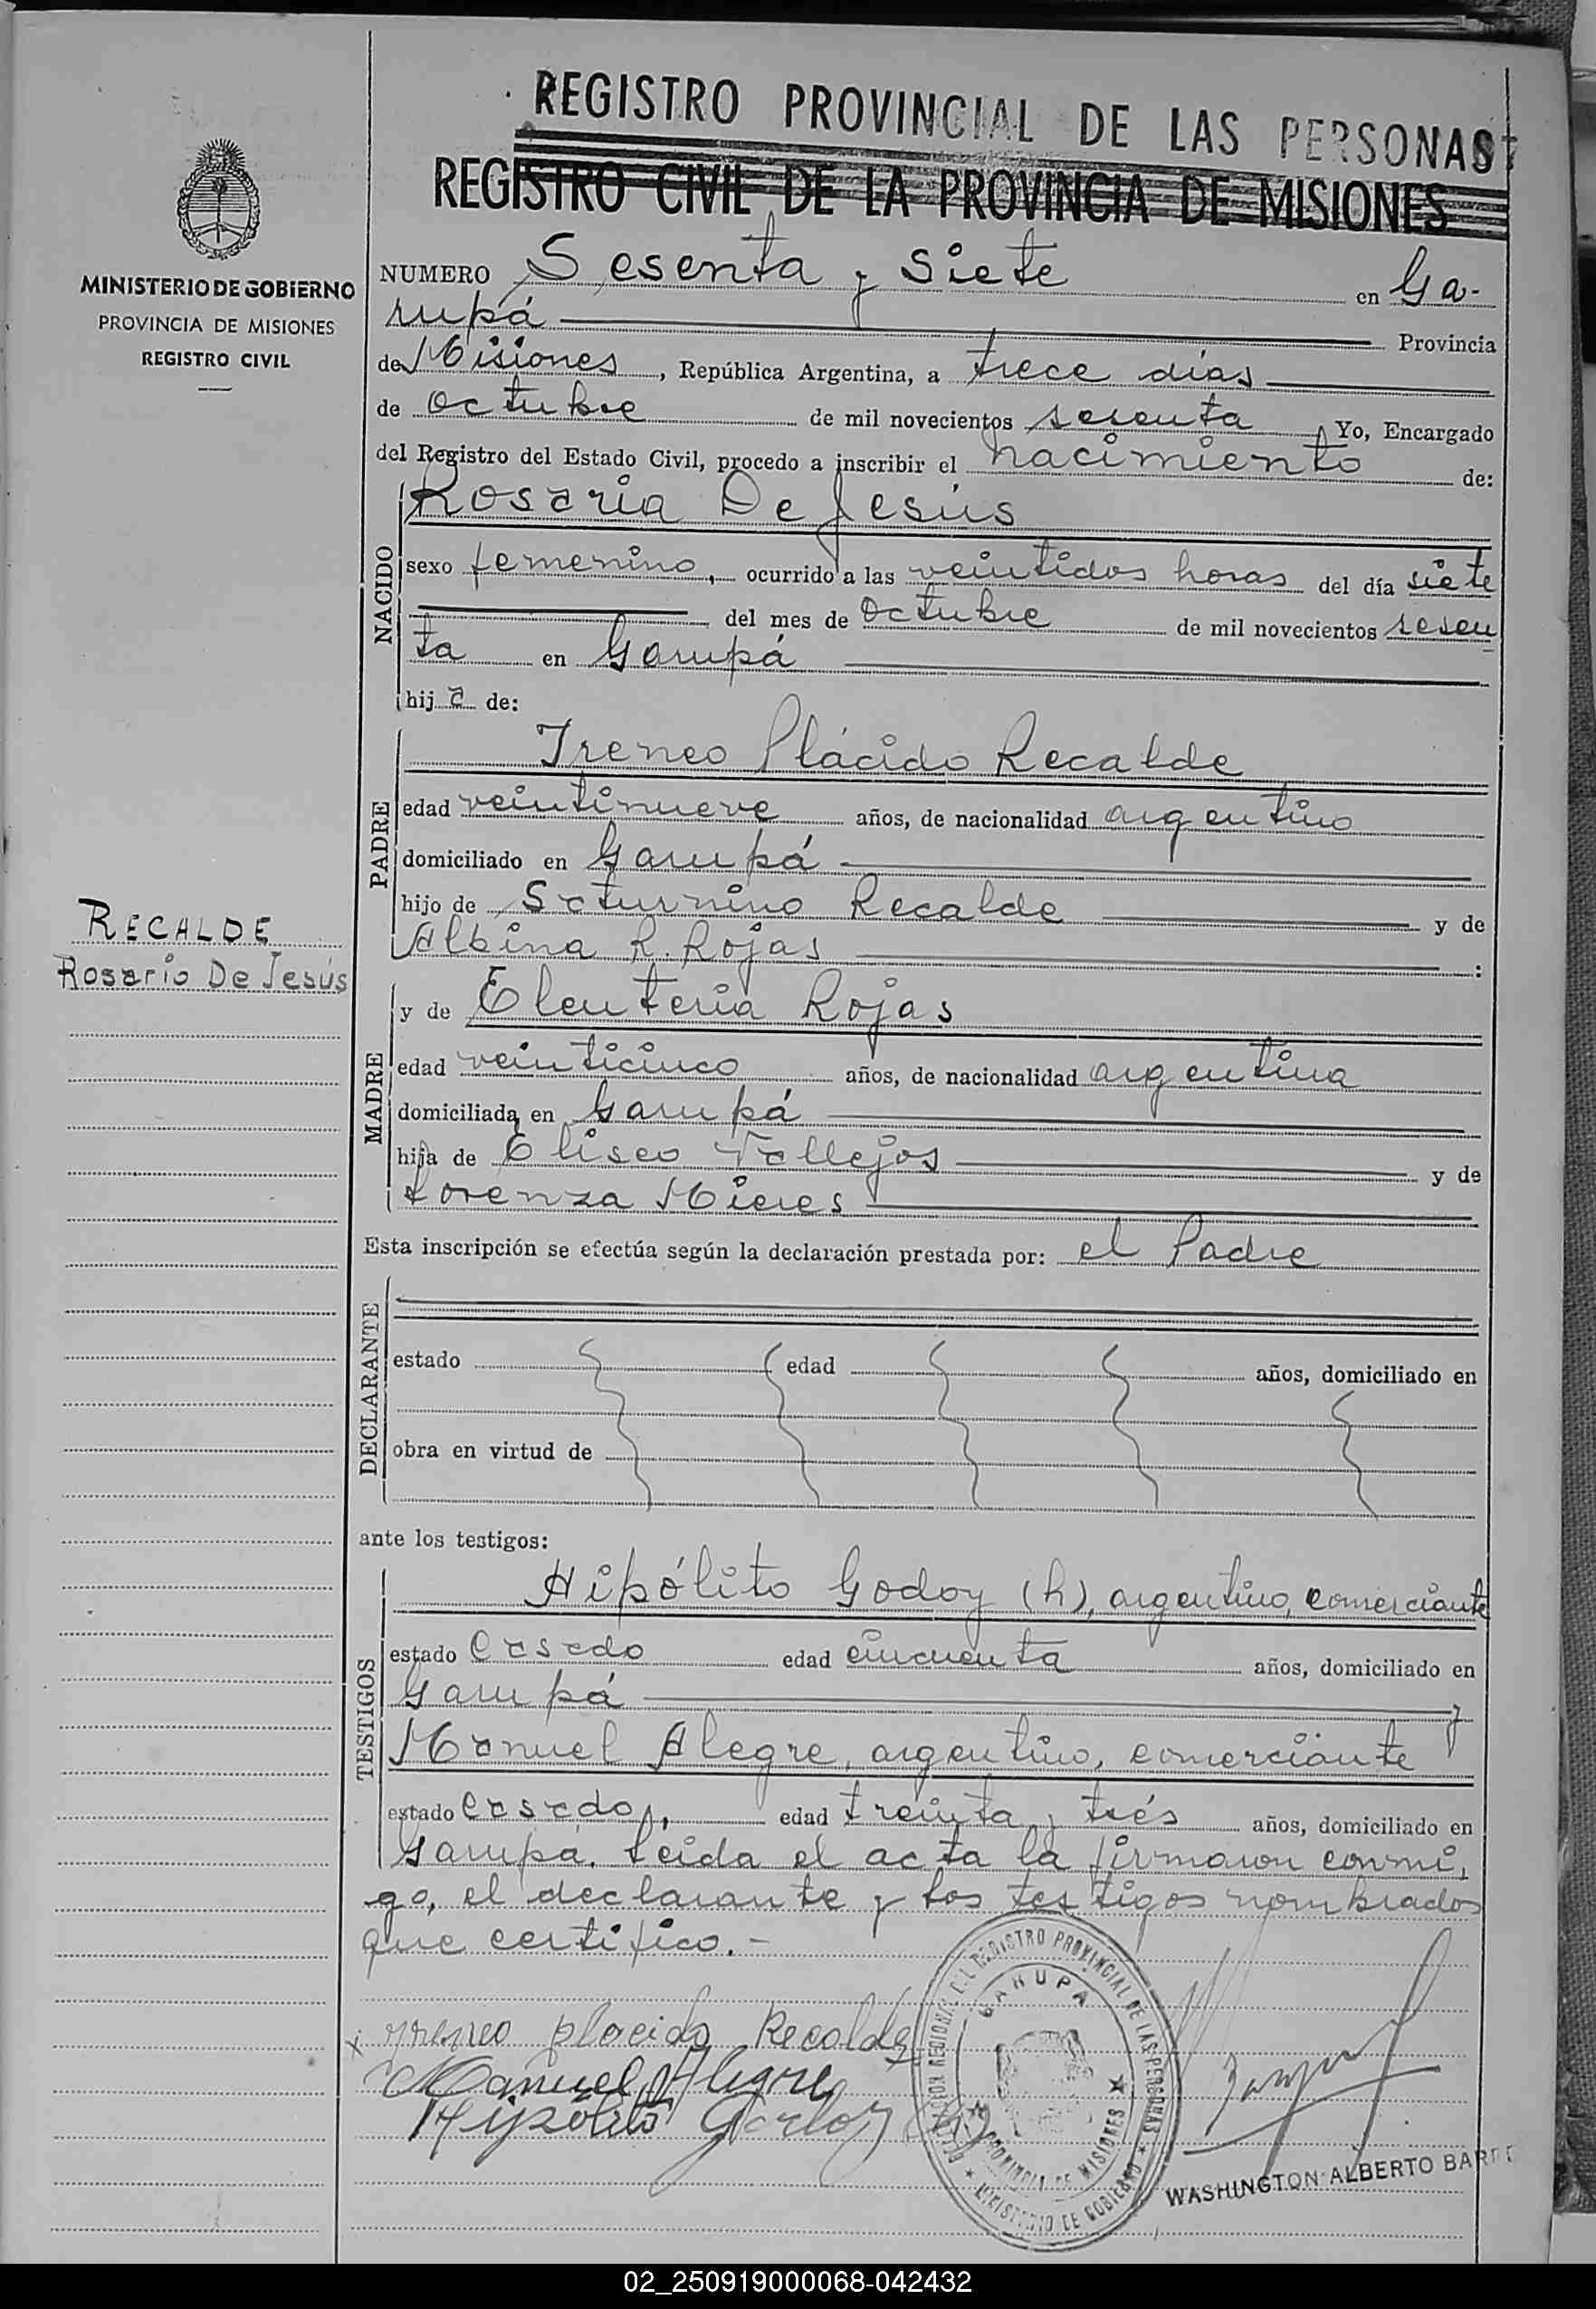 REGISTRO PROVINCIAL DE LAS PERSONAS
REGISTRO CIVIL DE LA PROVINCIA DE MISIONES
MINISTERIO DE GOBIERNO
PROVINCIA DE MISIONES
REGISTRO CIVIL
NUMERO Sesenta y siete en Ga-
rupá Provincia
de Misiones, República Argentina, a trece días
de octubre de mil novecientos sesenta, Yo, Encargado
del Registro del Estado Civil, procedo a inscribir el nacimiento de:
NACIDO
Rosaria De Jesús
sexo femenino, ocurrido a las veintidos horas del día siete
del mes de Octubre de mil novecientos sesen
ta en Garupá
hij a de:
PADRE
Ireneo Plácido Recalde
edad veintinueve años, de nacionalidad argentino
domiciliado en Garupá
hijo de Saturnino Recalde y de
Albina R. Rojas :
RECALDE
Rosario De Jesús
MADRE
y de Eleuteria Rojas
edad veinticinco años, de nacionalidad argentina
domiciliada en Garupá
hija de Eliseo Vallejos y de
Lorenza Mieres
Esta inscripción se efectúa según la declaración prestada por: el Padre
DECLARANTE
estado edad años, domiciliado en
obra en virtud de
ante los testigos:
TESTIGOS
Hipólito Godoy (h), argentino, comerciante
estado casado edad cincuenta años, domiciliado en
Garupá y
Manuel Alegre, argentino, comerciante
estado casado, edad treinta y trés años, domiciliado en
Garupá. Leida el acta la firmaron conmi,
go, el declarante y los testigos nombrados
que certifico.-
x Yreneo placido Recalde
Manuel Alegre
Hipólito Godoy (h)
REGISTRO PROVINCIAL DE LAS PERSONAS
GARUPA
PROVINCIA DE MISIONES
MINISTERIO DE GOBIERNO
WASHINGTON ALBERTO
02_250919000068-042432